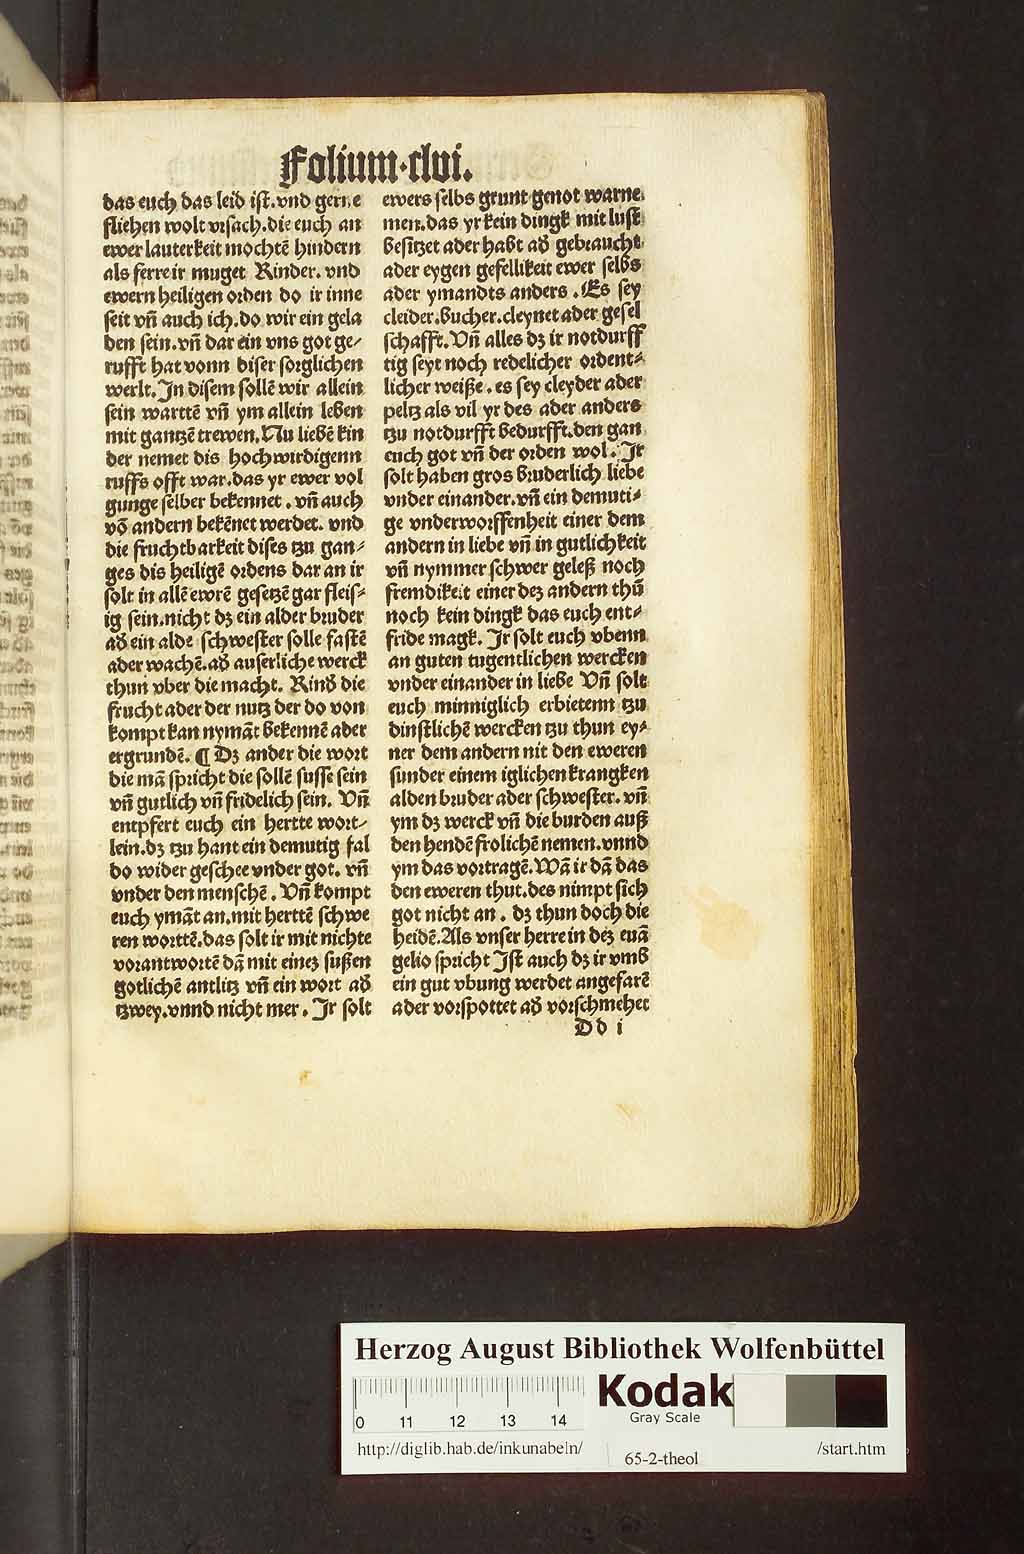 Folium·clvi.
das euch das leid ist. vnd gerne
fliehen wolt vrsach. die euch an
ewer lauterkeit mochtē hindern
als ferre ir muget Kinder. vnd
ewern heiligen orden do ir inne
seit vñ auch ich. do wir ein gela
den sein. vñ dar ein vns got ge⸗
rufft hat vonn diser sorglichen
werlt. In disem sollē wir allein
sein warttē vñ ym allein leben
mit gantzē trewen. Nu liebē kin
der nemet dis hochwirdigenn
ruffs offt war. das yr ewer vol
gunge selber bekennet. vñ auch
vō andern bekēnet werdet. vnd
die fruchtbarkeit dises tzu gan⸗
ges dis heiligē ordens dar an ir
solt in allē ewrē gesetzē gar fleis⸗
ig sein. nicht dz ein alder bruder
ad̕ ein alde schwester solle fastē
ader wachē. ad̕ auserliche werck
thun vber die macht. Kind̕ die
frucht ader der nutz der do von
kompt kan nymāt bekennē ader
ergrundē. ¶ Dz ander die wort
die mā spricht die sollē susse sein
vñ gutlich vñ fridelich sein. Vñ
entpfert euch ein hertte wort⸗
lein. dz tzu hant ein demutig fal
do wider geschee vnder got. vñ
vnder den menschē. Vñ kompt
euch ymāt an. mit herttē schwe
ren worttē. das solt ir mit nichte
vorantwortē dā mit einez sußen
gotlichē antlitz vñ ein wort ad̕
tzwey. vnnd nicht mer. Ir solt
ewers selbs grunt genot warne
men. das yr kein dingk mit lust
besitzet ader habt ad̕ gebraucht
ader eygen gefellikeit ewer selbs
ader ymandts anders. Es sey
cleider. bucher. cleynet ader gesel
schafft. Vñ alles dz ir notdurff
tig seyt noch redelicher ordent⸗
licher weiße. es sey cleyder ader
peltz als vil yr des ader anders
tzu notdurfft bedurfft. den gan
euch got vñ der orden wol. Ir
solt haben gros bruderlich liebe
vnder einander. vñ ein demuti⸗
ge vnderworffenheit einer dem
andern in liebe vñ in gutlichkeit
vñ nymmer schwer geleß noch
fremdikeit einer dez andern thū
noch kein dingk das euch ent⸗
fride magk. Ir solt euch vbenn
an guten tugentlichen wercken
vnder einander in liebe Vñ solt
euch minniglich erbietenn tzu
dinstlichē wercken tzu thun ey⸗
ner dem andern nit den eweren
sunder einem iglichen krangken
alden bruder ader schwester. vñ
ym dz werck vñ die burden auß
den hendē frolichē nemen. vnnd
ym das vortragē. Wā ir dā das
den eweren thut. des nimpt sich
got nicht an. dz thun doch die
heidē. Als vnser herre in dez euā
gelio spricht Ist auch dz ir vmb
ein gut vbung werdet angefarē
ader vorspottet ad̕ vorschmehet
Dd i
Herzog August Bibliothek Wolfenbüttel
0 11 12 13 14
Kodak
Gray Scale
http://diglib.hab.de/inkunabeln/
65-2-theol
/start.htm